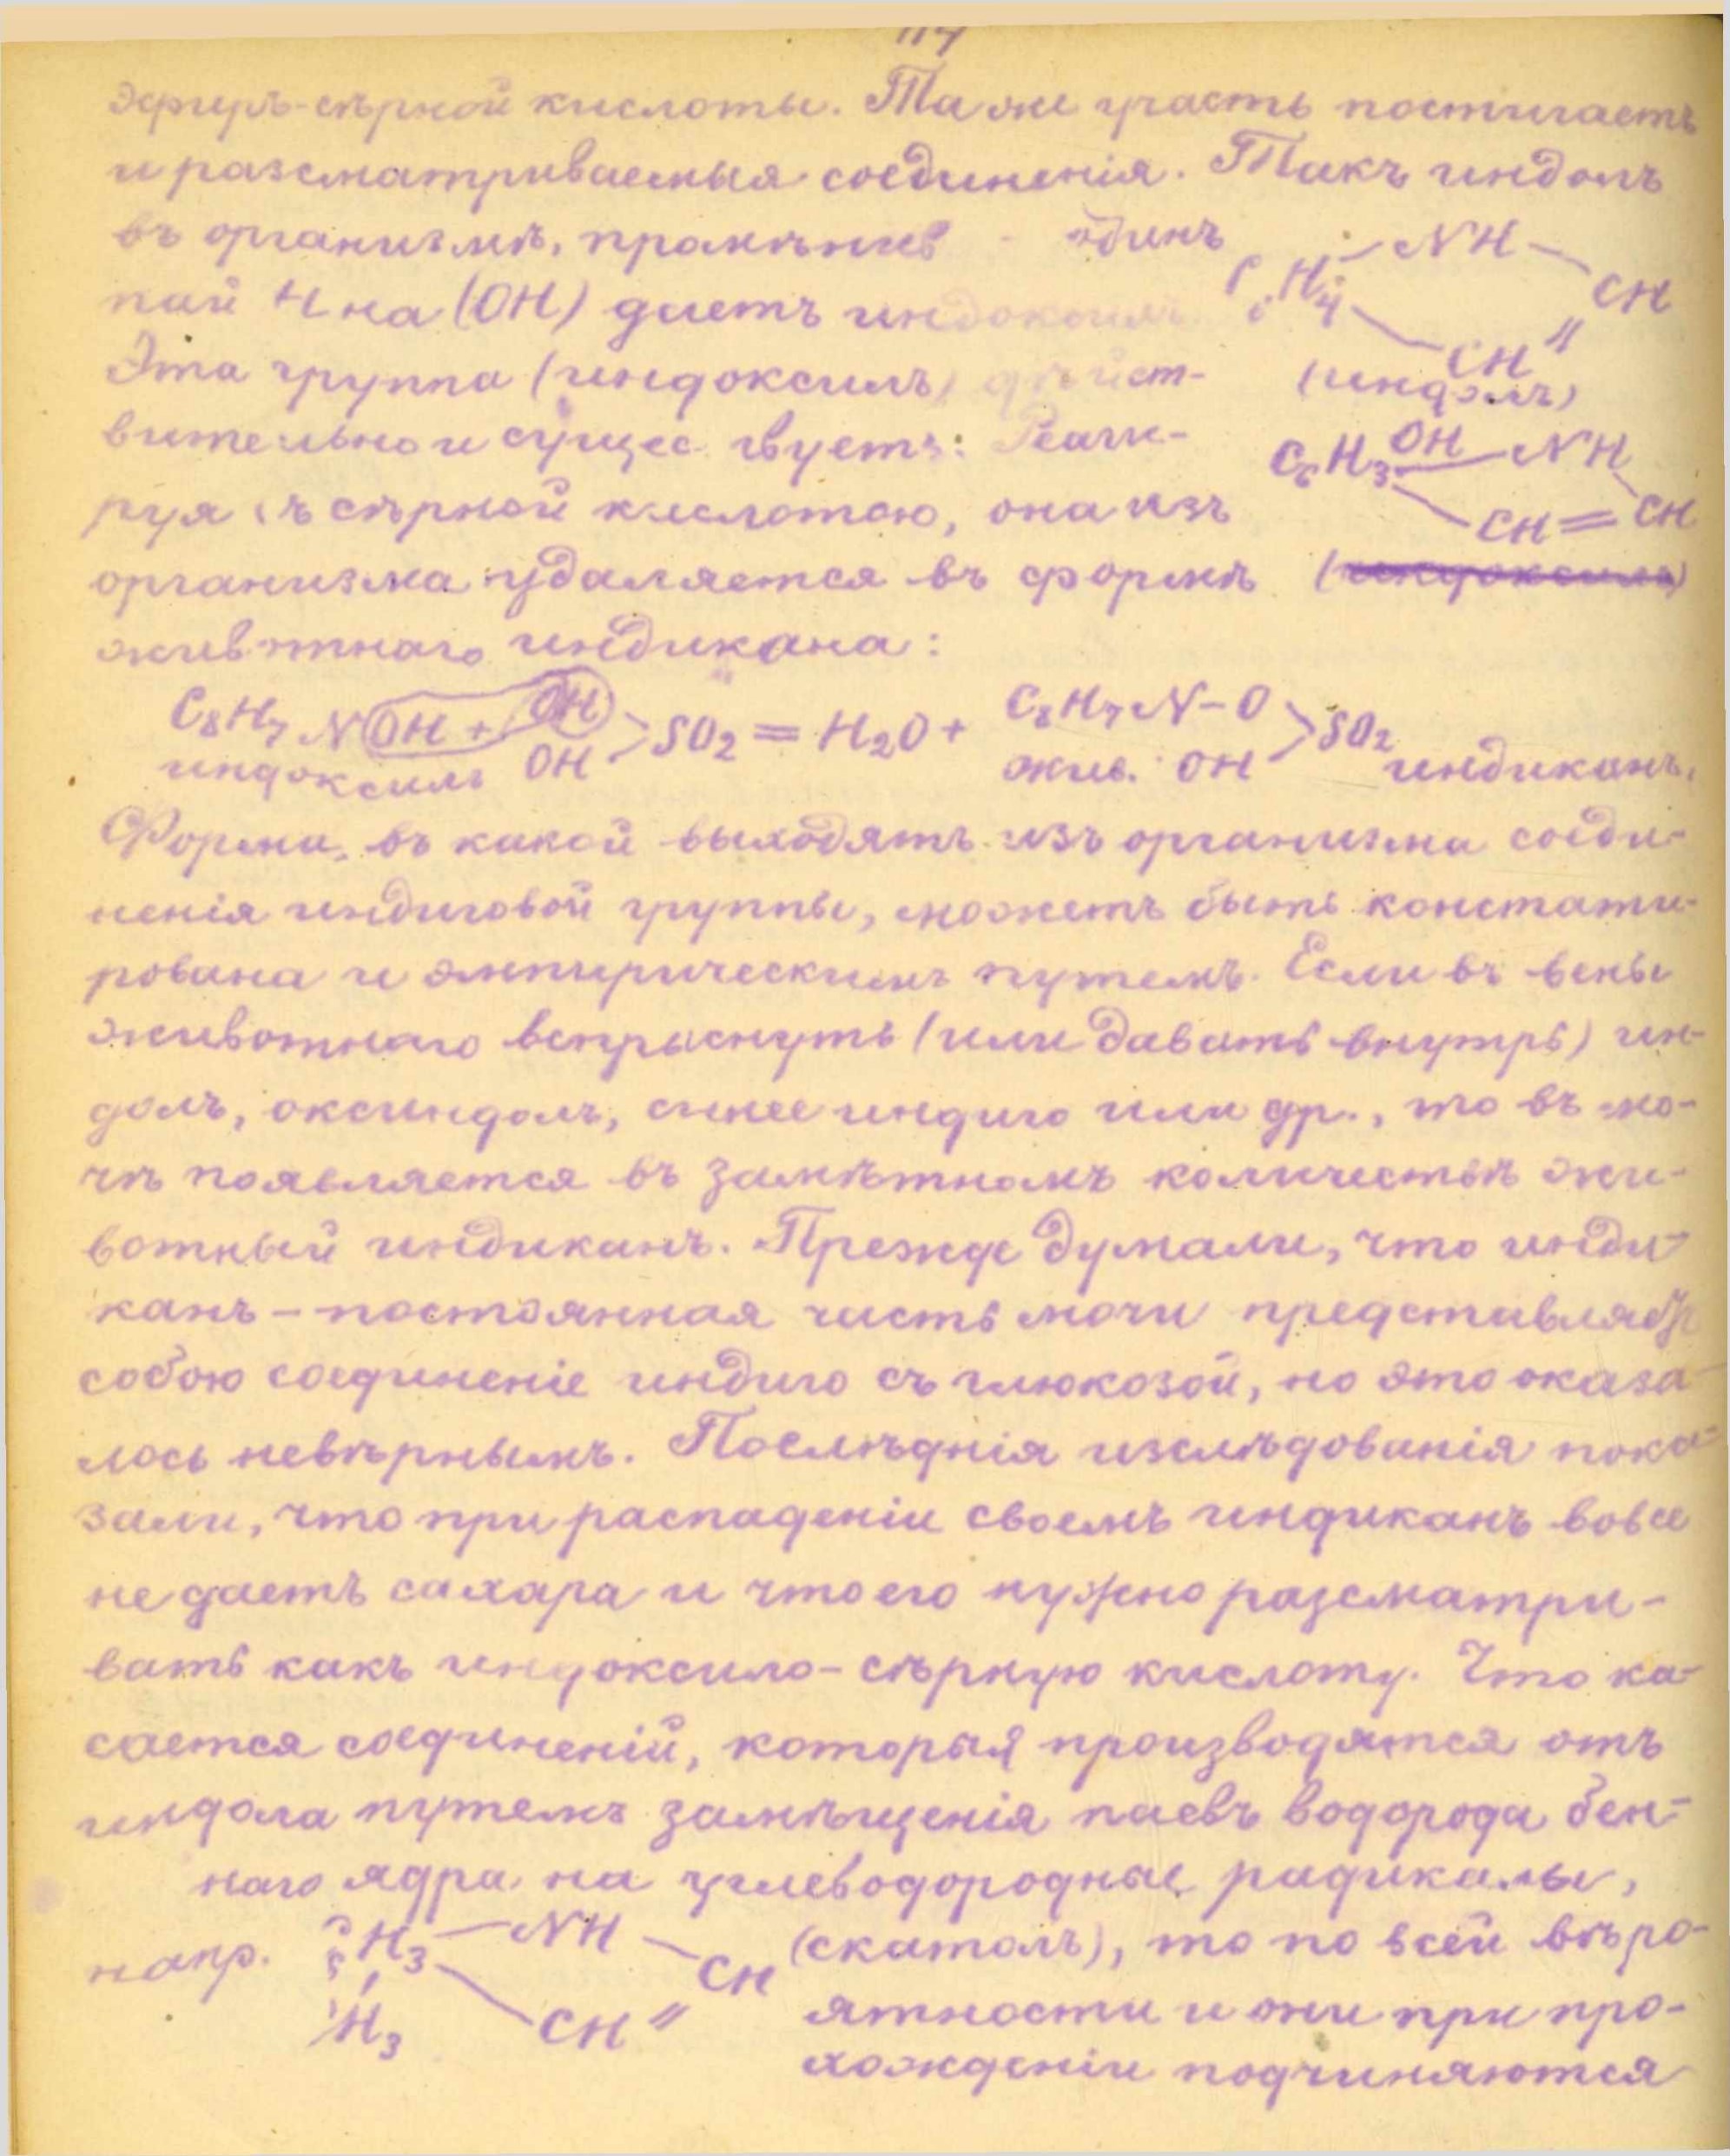 117
эфиръ-сѣрной кислоты. Та же участь постигаетъ
и разсматриваемыя соединенія. Такъ индолъ
въ организмѣ, промѣнивъ один
пай H на (OH) даетъ индоксилъ
C6H4 — NH — CH
CH "
(индолъ)
Эта группа (индоксилъ) дѣйст-
вительно и сущес твуетъ: Реаги-
руя съ сѣрной кислотою, она изъ
C6H3 OH — NH
CH = CH
организма удаляется въ формѣ
животнаго индикана:
C8H7 N OH + OH OH > SO2 = H2O + C8H7N-O OH > SO2
индоксилъ жив. индиканъ.
Форма, въ какой выходятъ изъ организма соеди-
ненія индиговой группы, можетъ быть констати-
рована и эмпирическимъ путемъ. Если въ вены
животнаго вспрыснуть (или давать внутрь) ин-
долъ, оксиндолъ, синее индиго или др., то въ мо-
чѣ появляется въ замѣтномъ количествѣ жи-
вотный индиканъ. Прежде думали, что инди-
канъ - постоянная часть мочи представляетъ
собою соединеніе индиго съ глюкозой, но это оказа-
лось невѣрнымъ. Послѣднія изслѣдованія пока-
зали, что при распаденіи своемъ индиканъ вовсе
не даетъ сахара и что его нужно разсматри-
вать какъ индоксило-сѣрную кислоту. Что ка-
сается соединеній, которыя производятся отъ
индола путемъ замѣщенія паевъ водорода бен-
наго ядра на углеводородные радикалы,
напр. C6H3 — NH — CH (скатолъ), то по всей вѣро-
CH3 CH " ятности и они при про-
хожденіи подчиняются